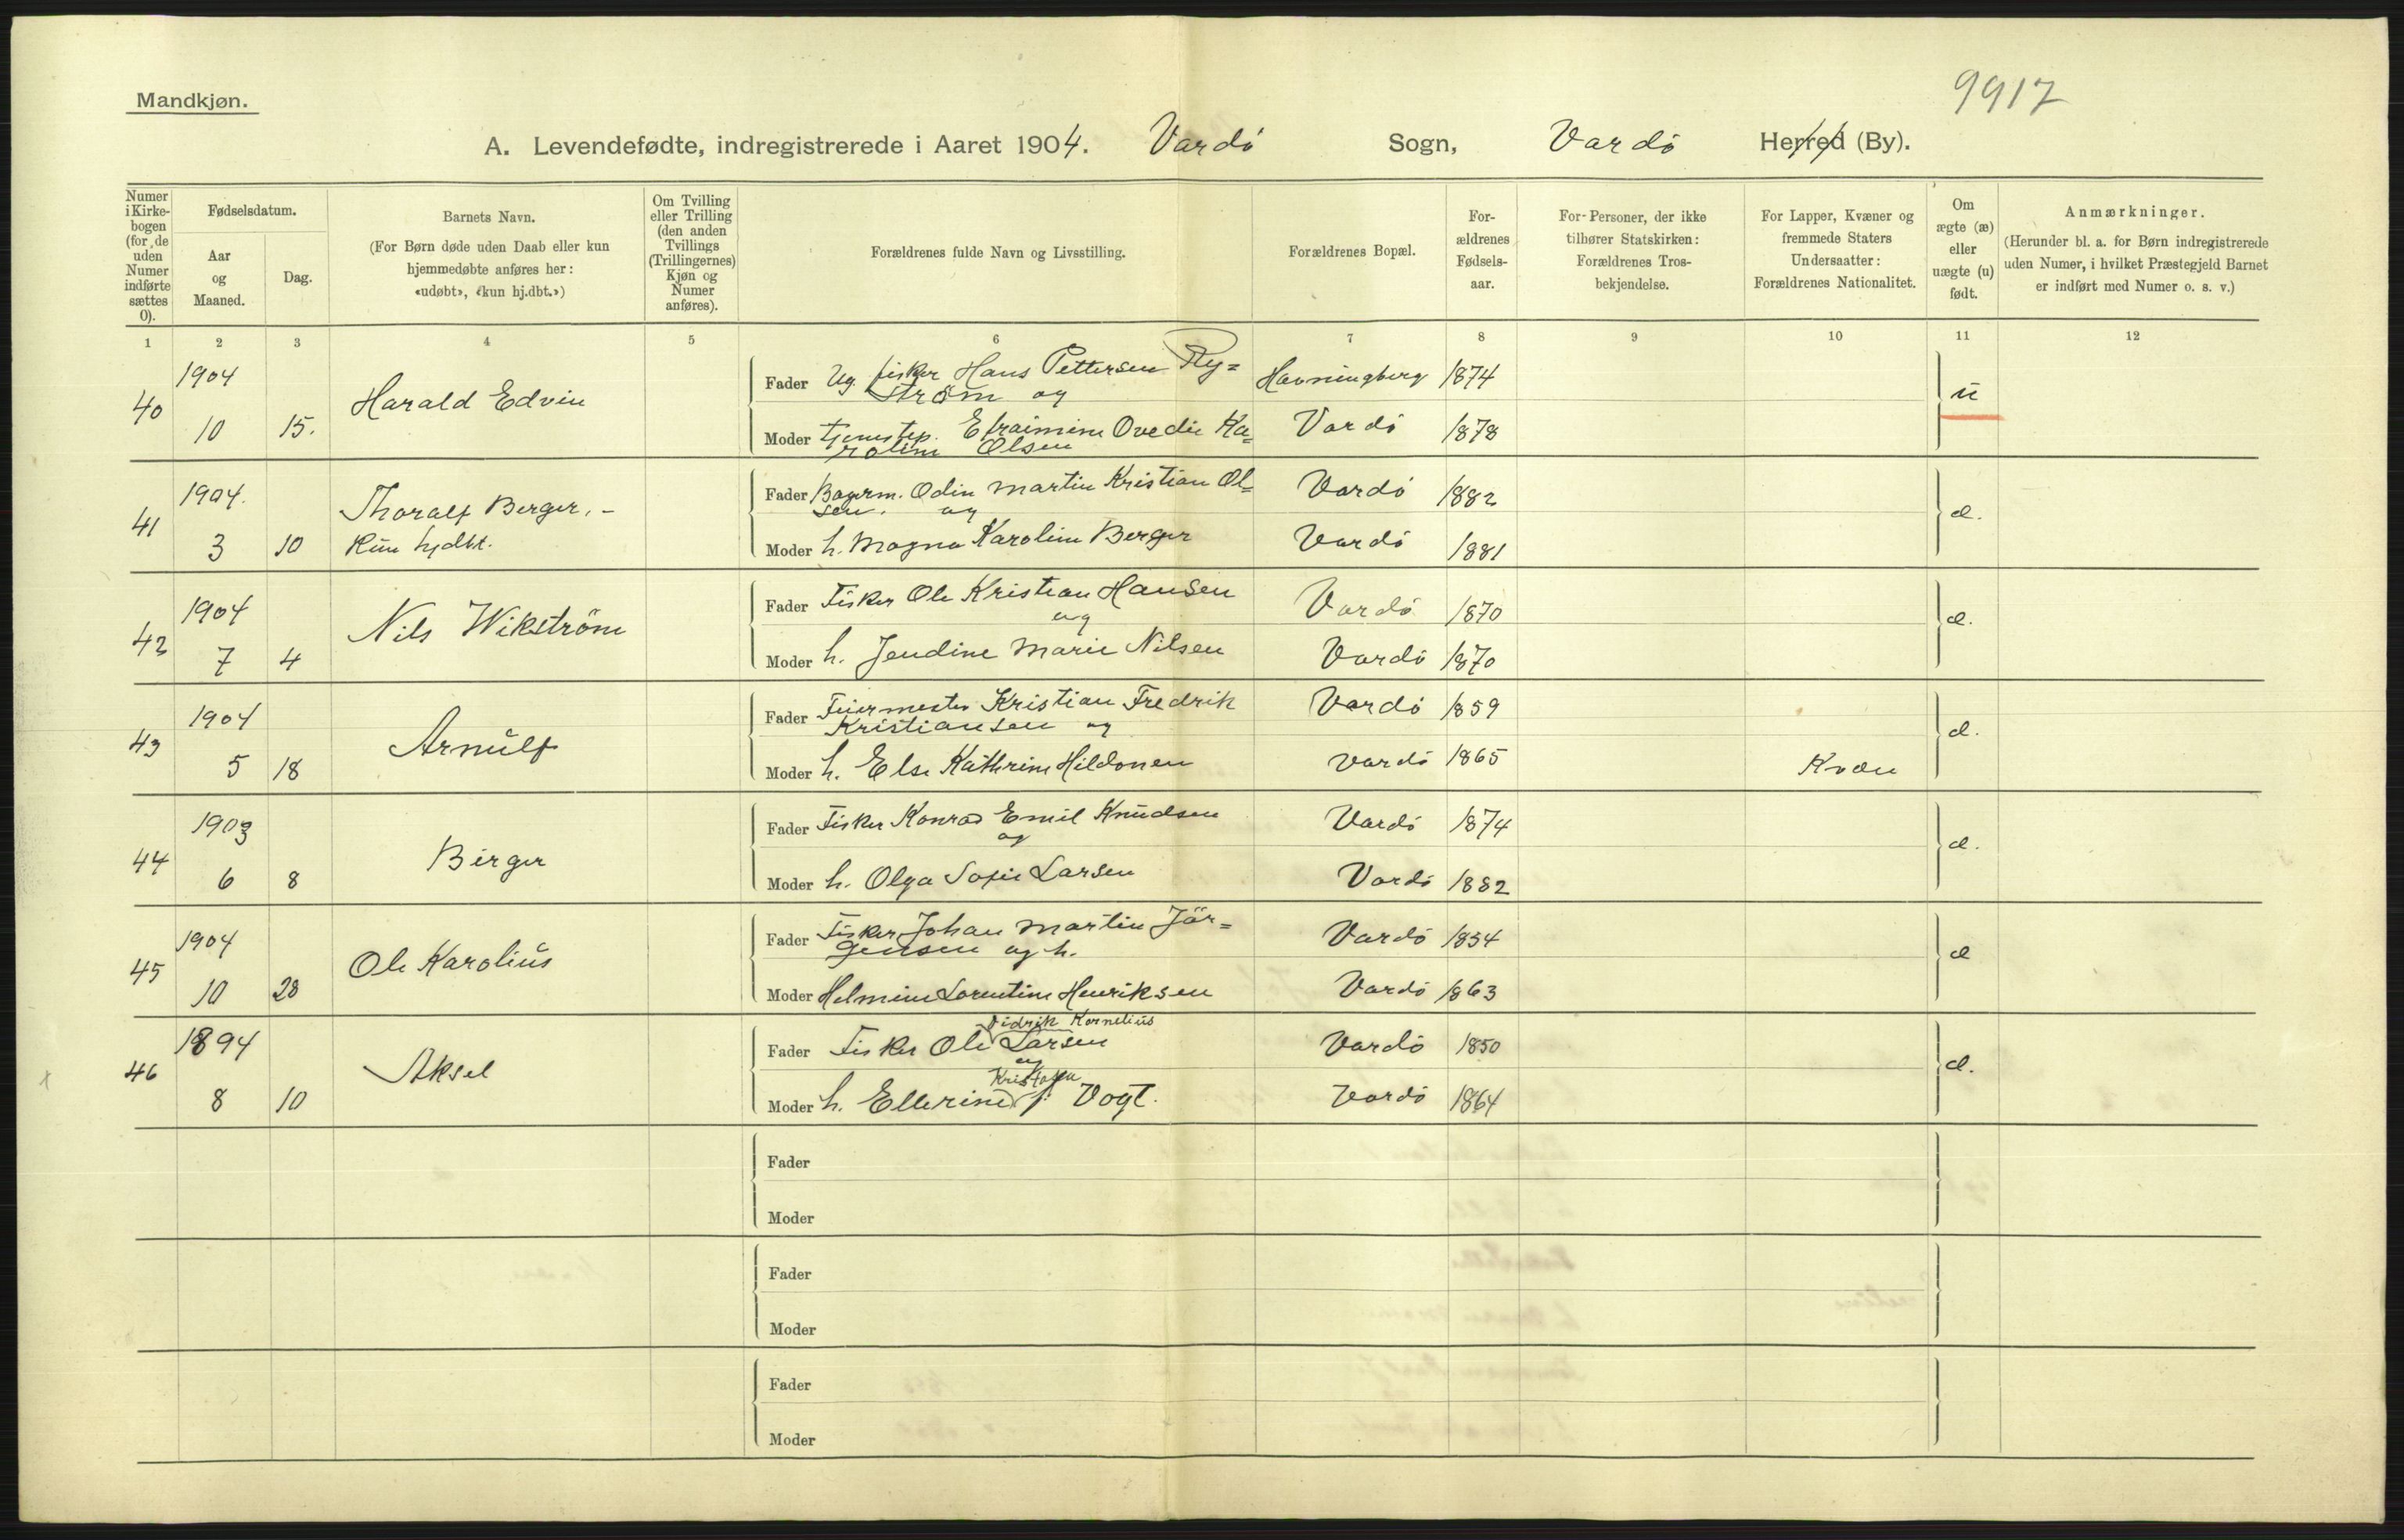 9917
Mandkjøn.
A. Levendefødte, indregistrerede i Aaret 1904. Vardö Sogn, Vardö Herred (By).
Numer i Kirkebogen (for de uden Numer indførte sættes 0).
Fødselsdatum.
Aar og Maaned.
Dag.
Barnets Navn.
(For Børn døde uden Daab eller kun
hjemmedøbte anføres her:
«udøbt», «kun hj.dbt.»)
Om Tvilling
eller Trilling
(den anden
Tvillings
(Trillingernes)
Kjøn og
Numer
anføres).
Forældrenes fulde Navn og Livsstilling.
Forældrenes Bopæl.
For-
ældrenes
Fødsels-
aar.
For Personer, der ikke
tilhører Statskirken:
Forældrenes Tros-
bekjendelse.
For Lapper, Kvæner og
fremmede Staters
Undersaatter:
Forældrenes Nationalitet.
Om
ægte (æ)
eller
uægte (u)
født.
Anmærkninger.
(Herunder bl. a. for Børn indregistrerede
uden Numer, i hvilket Præstegjeld Barnet
er indført med Numer o. s. v.)
1 2 3 4 5 6 7 8 9 10 11 12
40 1904 10 15. Harald Edvin
Fader Ug. fisker Hans Pettersen Ry=
ström og Havningberg 1874 u
Moder tjenestep. Efraimine Ovedie Ka=
roline Olsen Vardö 1878
41 1904. 3 10 Thoralf Berger. -
Kun hjdbt.
Fader Bagerm. Odin Martin Kristian Ol=
sen. og Vardö 1882 æ.
Moder h. Magna Karoline Berger Vardö 1881
42 1904 7 4 Nils Wikström
Fader Fisker Ole Kristian Hansen
og Vardö 1870 æ.
Moder h. Jendine Marie Nilsen Vardö 1870
43 1904 5 18 Arnulf
Fader Feiermester Kristian Fredrik
Kristiansen og Vardö 1859 æ.
Moder h. Else Kathrine Hildonen Vardö 1865 Kvæn
44 1903 6 8 Birger
Fader Fisker Konrad Emil Knudsen
og Vardö 1874 æ.
Moder h. Olga Sofie Larsen Vardö 1882
45 1904 10 28 Ole Karolius
Fader Fisker Johan Martin Jör=
gensen og h. Vardö 1854 æ
Moder Helmine Lorentine Henriksen Vardö 1863
46 1894 8 10 Aksel
Didrik Kornelius
Fader Fisker Ole Larsen
og Vardö 1850 æ.
Kristofa
Moder h. Ellerine J. Vogt. Vardö 1864
Fader
Moder
Fader
Moder
Fader
Moder